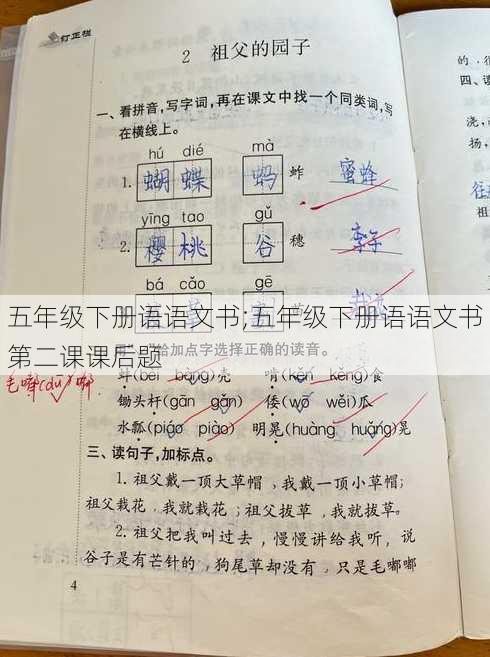 订正栏
2 祖父的园子
一、看拼音,写字词,再在课文中找一个同类词,写
在横线上。
hú dié mà
1. 蝴蝶 蚂 蚱 蜜蜂
yīng tao gǔ
2. 樱桃 谷 穗
bá cǎo gē
五年级下册语语文书;五年级下册语语文书
第二课课后题
给加点字选择正确的读音。
蚌(bèi bàng)壳 啃(kěn kěng)食
毛嘟(dū)嘟
锄头杆(gān gǎn) 倭(wō wěi)瓜
水瓢(piáo piào) 明晃(huàng huǎng)晃
三、读句子,加标点。
1. 祖父戴一顶大草帽,我戴一顶小草帽;
祖父栽花,我就栽花;祖父拔草,我就拔草。
2. 祖父把我叫过去,慢慢讲给我听,说
谷子是有芒针的,狗尾草却没有,只是毛嘟嘟
4
的,很
四、读
浇,
扬,